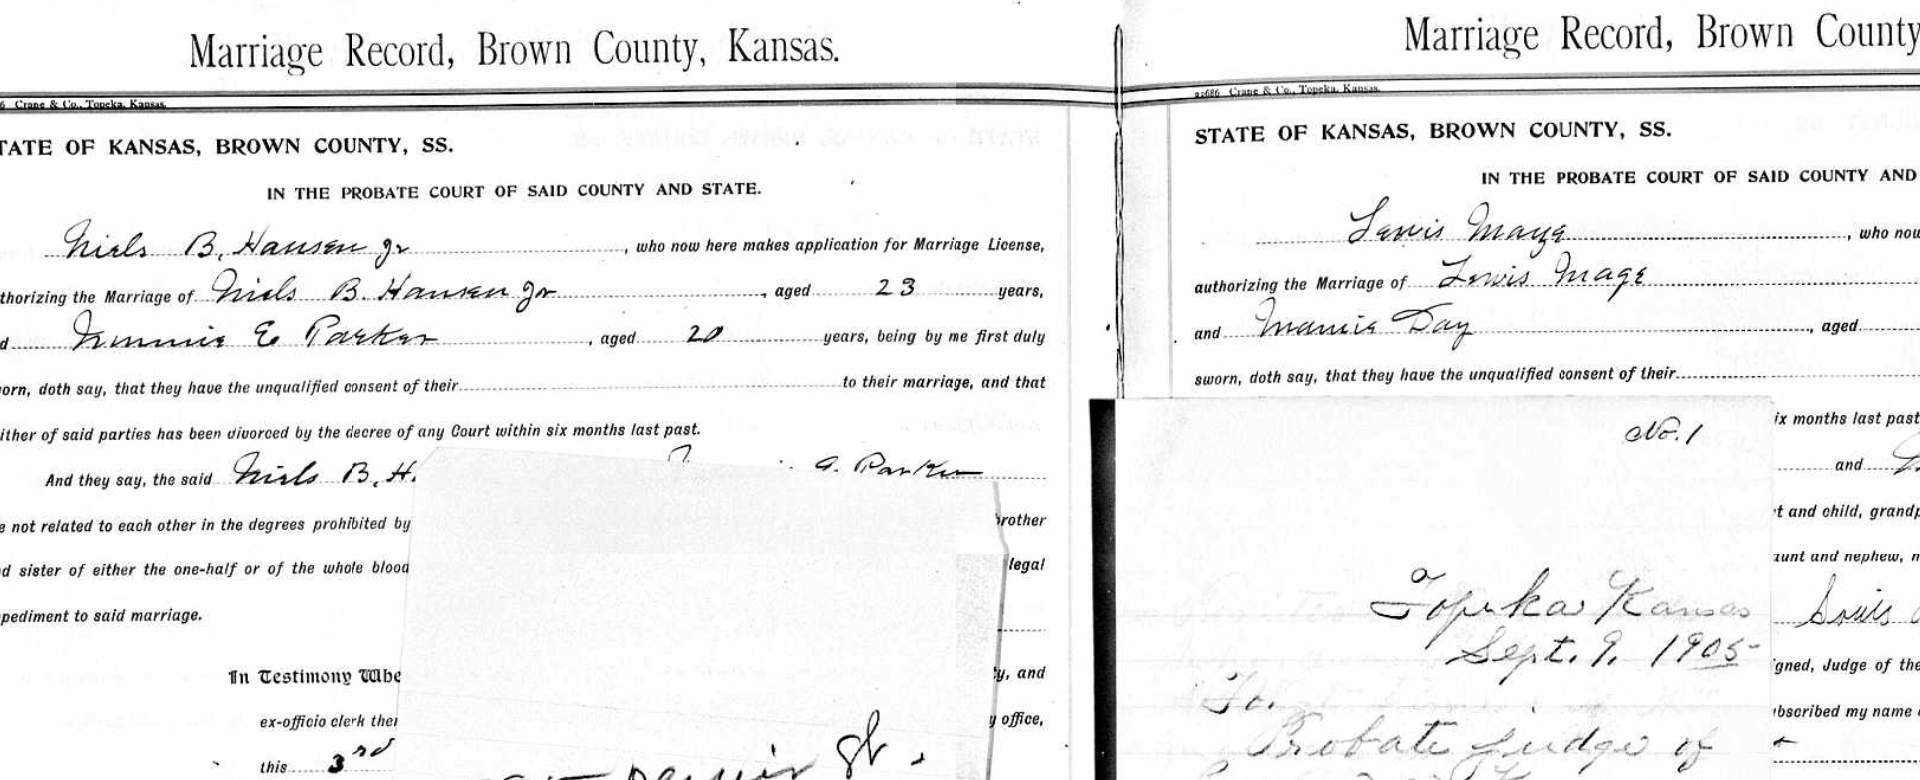 Marriage Record, Brown County, Kansas.
6 Crane & Co., Topeka, Kansas.
TATE OF KANSAS, BROWN COUNTY, SS.
IN THE PROBATE COURT OF SAID COUNTY AND STATE.
Niels B. Hansen Jr, who now here makes application for Marriage License,
thorizing the Marriage of Niels B. Hansen Jr, aged 23 years,
d Minnie E Parker, aged 20 years, being by me first duly
orn, doth say, that they have the unqualified consent of their to their marriage, and that
ither of said parties has been divorced by the decree of any Court within six months last past.
And they say, the said Niels B. H. Parker
e not related to each other in the degrees prohibited by brother
d sister of either the one-half or of the whole blood legal
pediment to said marriage.
In Testimony Whe y, and
ex-officio clerk ther y office,
this 3rd
Marriage Record, Brown County
21686 Crane & Co., Topeka, Kansas.
STATE OF KANSAS, BROWN COUNTY, SS.
IN THE PROBATE COURT OF SAID COUNTY AND
Lewis Maye, who now
authorizing the Marriage of Lewis Maye
and Mamie Day, aged
sworn, doth say, that they have the unqualified consent of their
ix months last past
and
t and child, grandp
aunt and nephew, n
Louis
igned, Judge of the
ubscribed my name
No. 1
Topeka Kansas
Sept. 9, 1905
To.
Probate Judge of